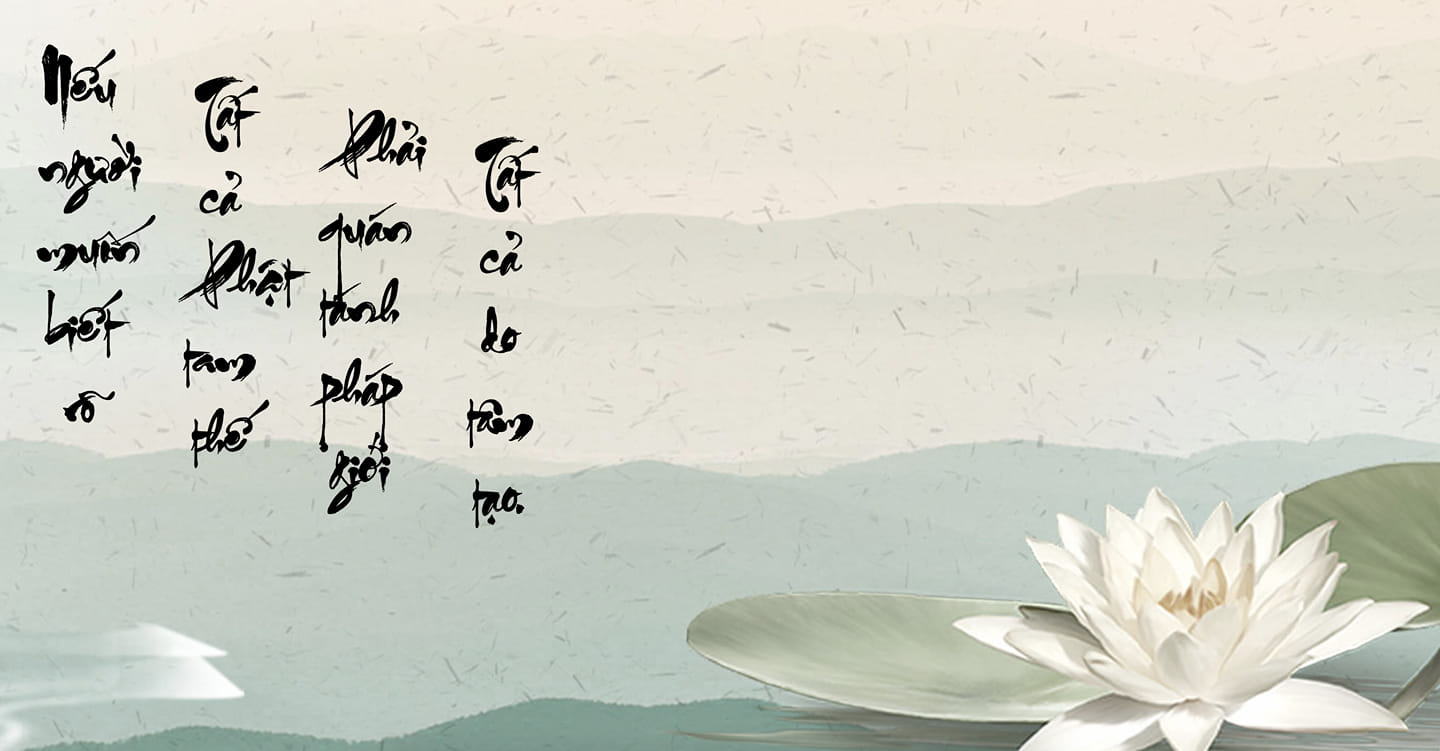 Nếu người muốn biết rõ
Tất cả Phật tam thế
Phải quán tánh pháp giới
Tất cả do tâm tạo.